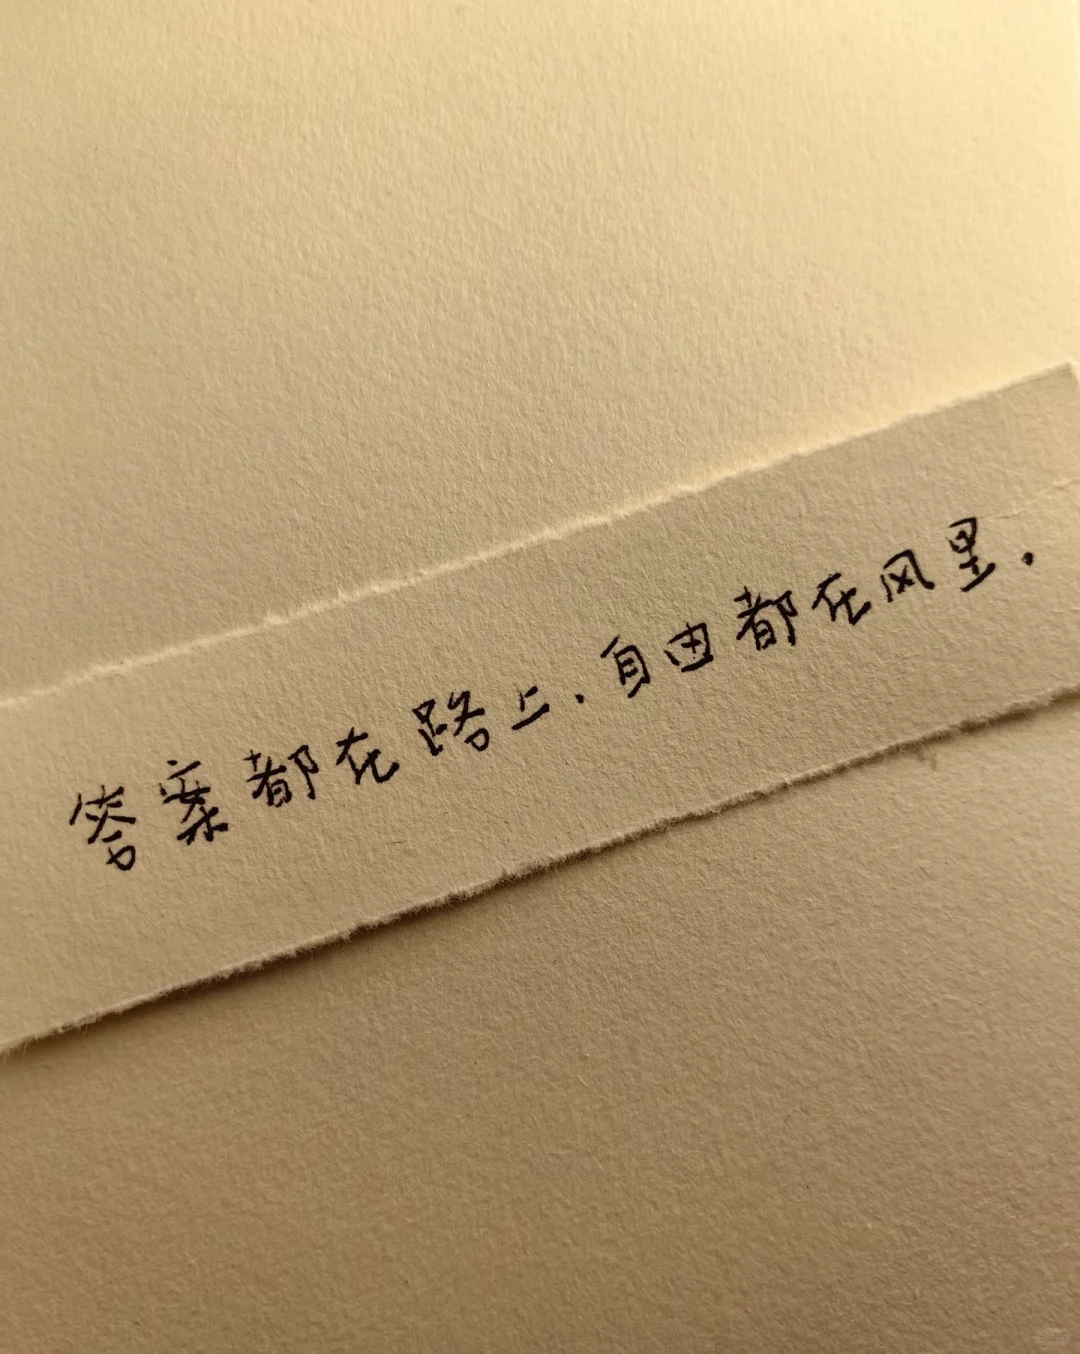 答案都在路上.自由都在风里.